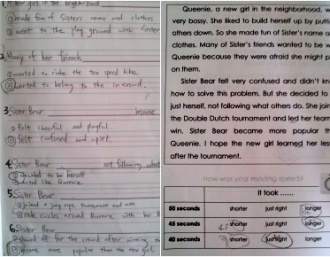 1. New girl in the neighborhood
made fun of Sister's name and clothes
went to the play ground with Sister
2. Many of her friends
wanted to ride the ten speed bike
wanted to belong to the in crowd.
3. Sister Bear because
felt cheerful and playful
felt confused and upset
4. Sister Bear not following
to be herself
like Queenie
5. Sister Bear
joined a jump rope tournament and won
rode circles around Queenie with her
6. Sister Bear
for the crowd after winning
became more popular than the new girl
Queenie, a new girl in the neighborhood,
very bossy. She liked to build herself up by
others down. So she made fun of Sister's name
clothes. Many of Sister's friends wanted to be
Queenie because they were afraid she might
on them.
Sister Bear felt very confused and didn't
how to solve this problem. But she decided to
just herself, not following what others do. She
the Double Dutch tournament and led her team
win. Sister Bear became more popular
Queenie. I hope the new girl learned her
after the tournament.
How was your reading speed?
It took ......
50 seconds shorter just right longer
45 seconds shorter just right longer
40 seconds shorter just right longer